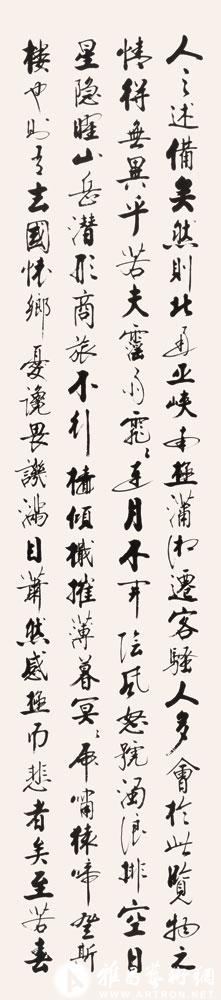 人之述備矣然則北通巫峽南極瀟湘遷客騷人多會於此覽物之
情得無異乎若夫霪雨霏〻連月不開陰風怒號濁浪排空日
星隐曜山岳潜形商旅不行檣傾楫摧薄暮冥〻虎嘯猿啼登斯
樓也則有去國懷鄉憂讒畏譏滿目蕭然感極而悲者矣至若春
雅昌艺术网
WWW.ARTRON.NET